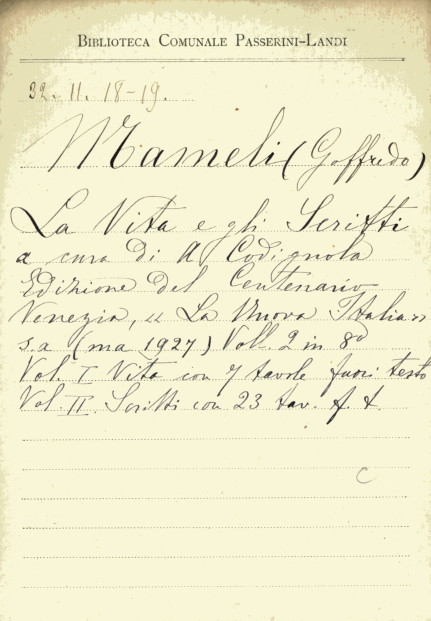 BIBLIOTECA COMUNALE PASSERINI-LANDI
32. II. 18-19.
Mameli (Goffredo)
La Vita e gli Scritti
a cura di A Codignola
Edizione del Centenario
Venezia, "La Nuova Italia"
s.a (ma 1927) Voll. 2 in 8º
Vol. I Vita con 7 tavole fuori testo
Vol. II. Scritti con 23 tav. f. t.
C